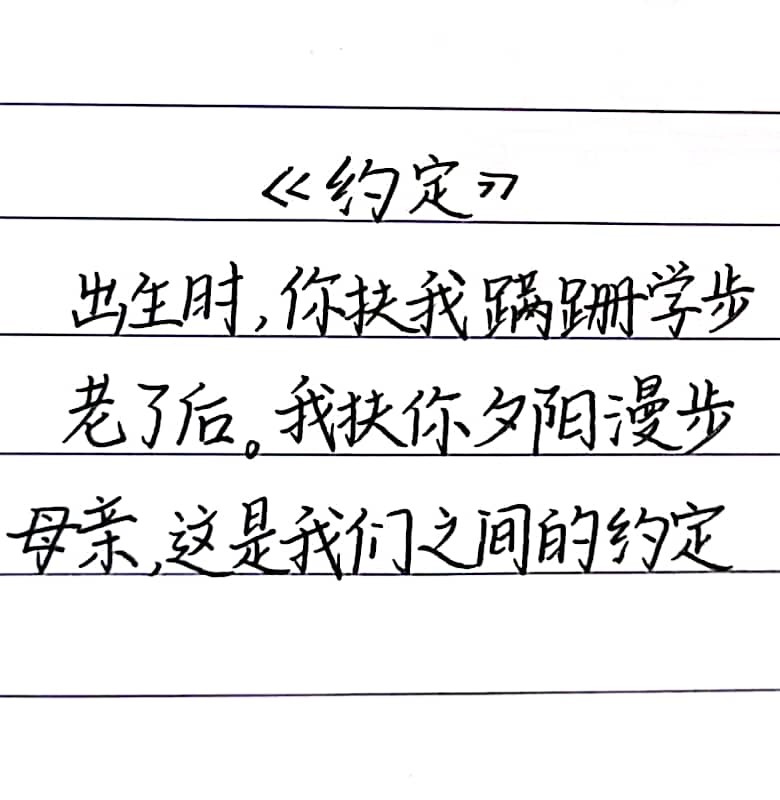 《约定》
出生时,你扶我蹒跚学步
老了后。我扶你夕阳漫步
母亲,这是我们之间的约定